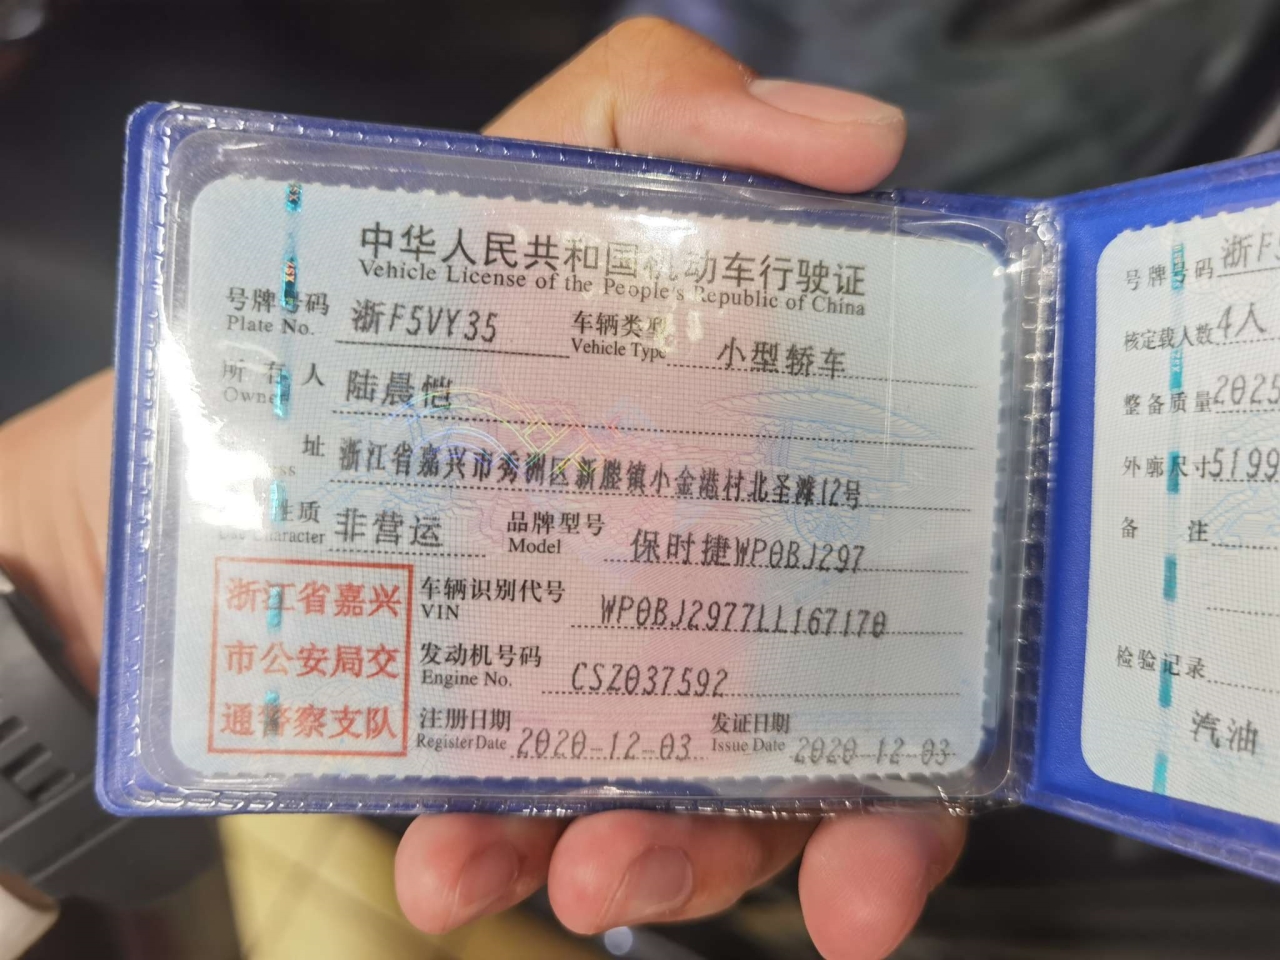 中华人民共和国机动车行驶证
Vehicle License of the People's Republic of China
号牌号码 浙F5VY35 车辆类型 小型轿车
Plate No. Vehicle Type
所有人 陆晨恺
Owner
址 浙江省嘉兴市秀洲区新塍镇小金港村北圣滩12号
性质 非营运 品牌型号 保时捷WP0BJ297
Character Model
车辆识别代号 WP0BJ2977LL167170
VIN
发动机号码 CSZ037592
Engine No.
注册日期 2020-12-03 发证日期 2020-12-03
Register Date Issue Date
浙江省嘉兴
市公安局交
通警察支队
号牌号码 浙F5
核定载人数 4人
整备质量 2025
外廓尺寸 5199
备注
检验记录
汽油